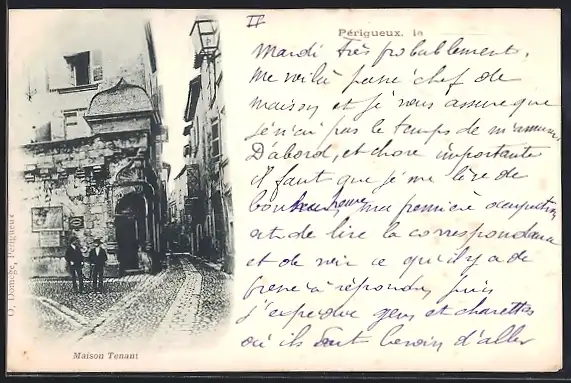 II
Périgueux, le
Mardi très probablement.
Me voilà passé chef de
maison et je vous assure que
je n'ai pas le temps de m'amuser
D'abord, et chose importante
il faut que je me lève de
bonne heure, ma première occupation
est de lire la correspondance
et de voir ce qu'il y a de
pressé à répondre, puis
j'expédie gens et charettes
où ils sont besoin d'aller
Maison Tenant
O. Domège, Périgueux